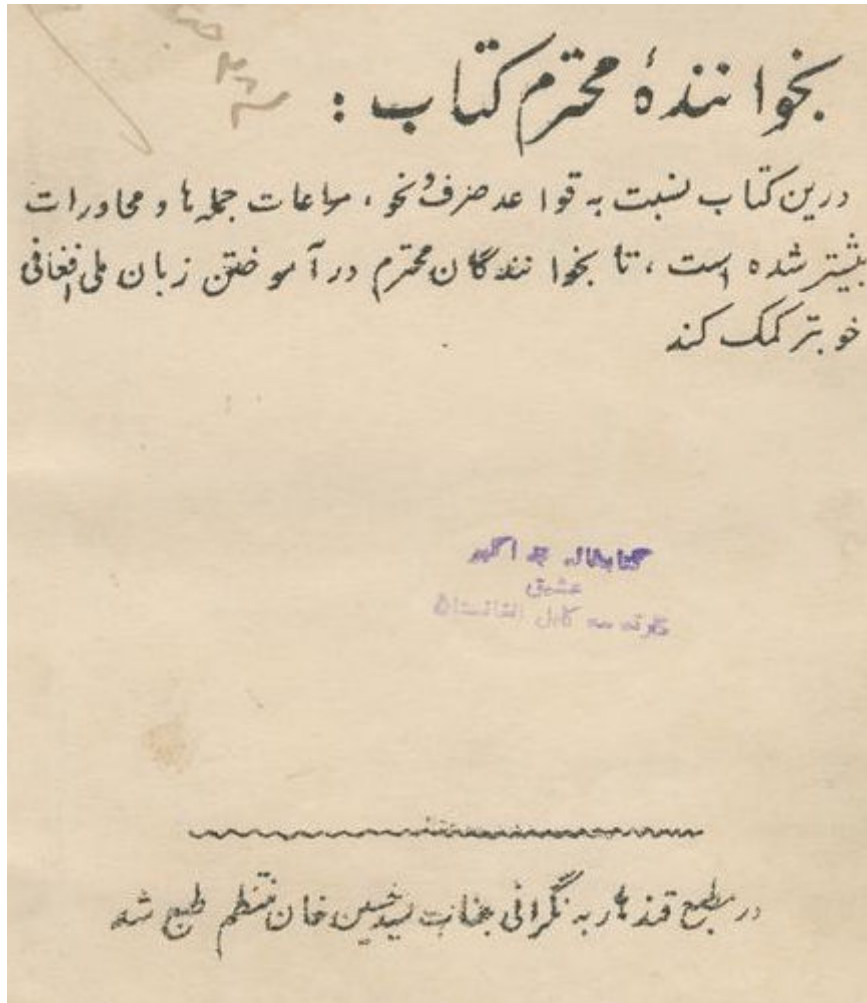 بخوانندهٔ محترم کتاب :
درین کتاب نسبت به قواعد صرف و نحو ، مراعات جمله ها و محاورات
بیشتر شده است ، تا بخوانندگان محترم در آموختن زبان ملی افغانی
خوبتر کمک کند
کتابخانه محمد اکبر
عشیق
کارته سه کابل افغانستان
در مطبع قندهار به نگرانی جناب سید حسین خان منتظم طبع شد